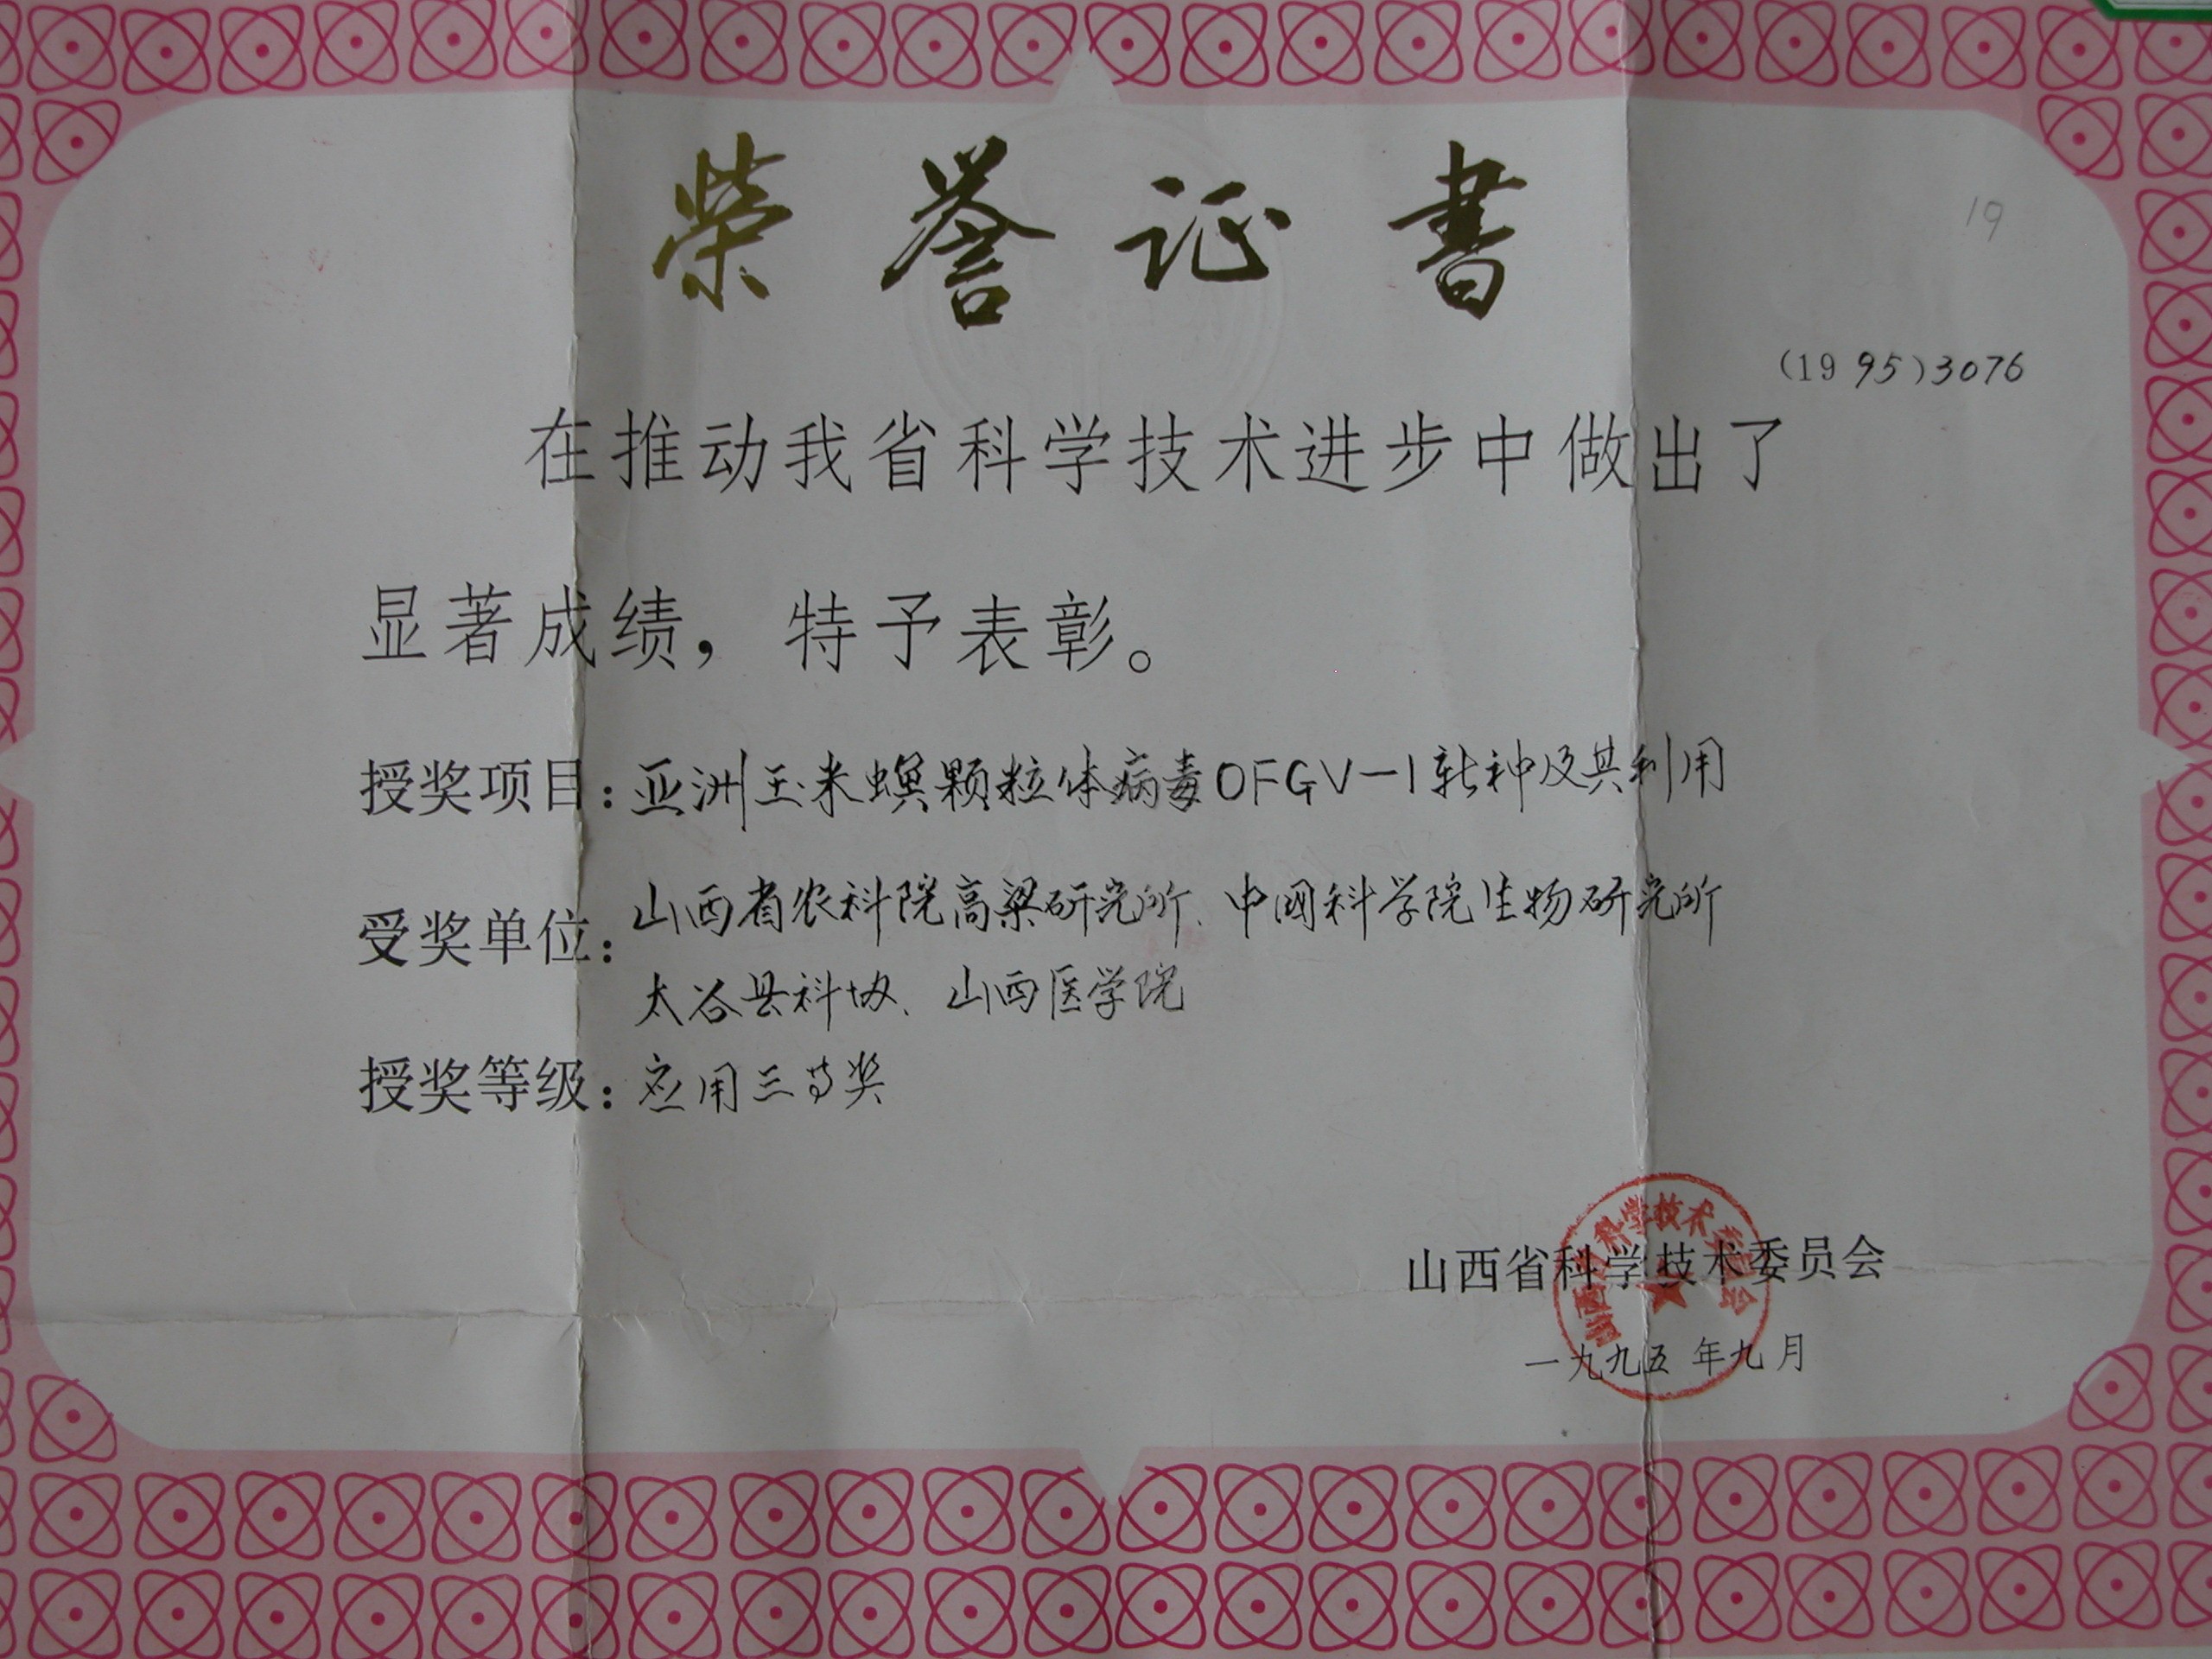 榮誉证書
19
(1995)3076
在推动我省科学技术进步中做出了
显著成绩，特予表彰。
授奖项目：亚洲玉米螟颗粒体病毒OFGV-1转种及其利用
受奖单位：山西省农科院高粱研究所、中国科学院生物研究所
太谷县科协、山西医学院
授奖等级：应用三等奖
山西省科学技术委员会
山西省科学技术委员会
一九九五年九月